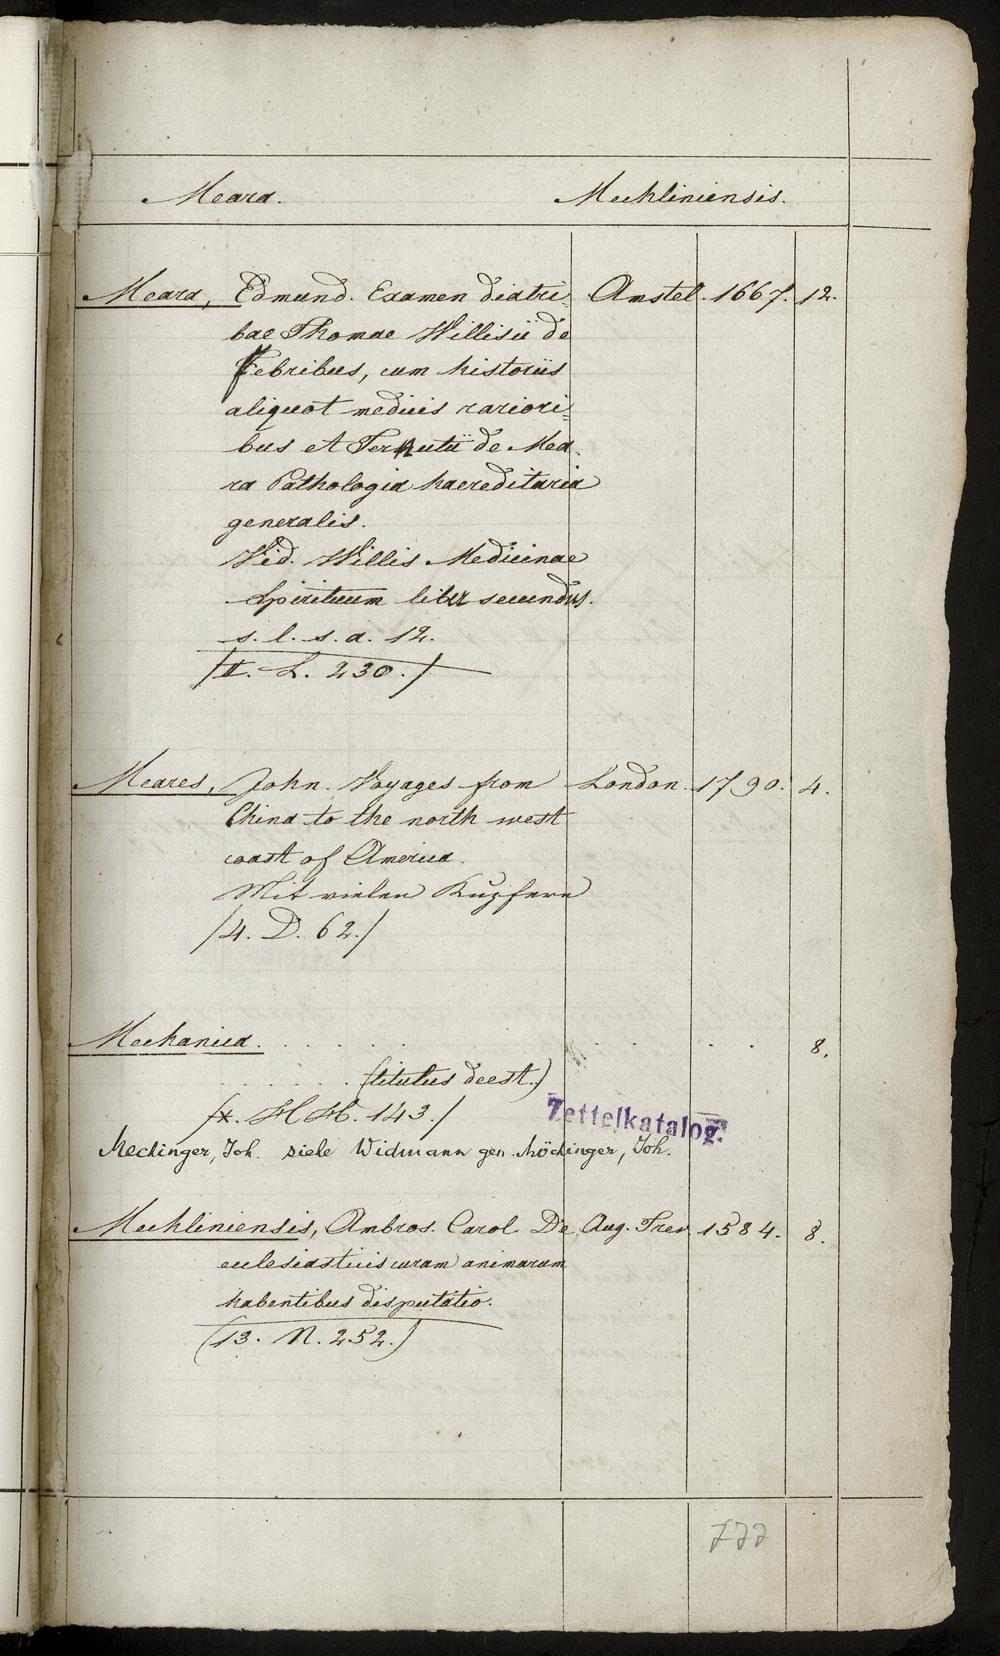 Meara. Mechliniensis.
Meara, Edmund. Examen diatri- Amstel. 1667. 12.
bae Thomae Willisii de
Febribus, cum historiis
aliquot medicis rariori=
bus et Ternutii de Mea-
ra Pathologia haereditaria
generalis.
Vid. Willis Medicinae
Spirituum liber secundus.
s. l. s. a. 12.
/II. L. 230./
Meares, John. Voyages from London. 1790. 4.
China to the north west
coast of America.
Mit vielen Kupfern
/4. D. 62./
Mechanica. . . . . . . . . 8.
. . . . . . . (titulus deest.)
/x. HH. 143./
Zettelkatalog.
Meckinger, Joh. siehe Widmann gen. Möckinger, Joh.
Mechliniensis, Ambros. Carol. De Aug. Trev. 1584. 8.
ecclesiasticis curam animarum
habentibus disputatio.
(13. N. 252.)
777